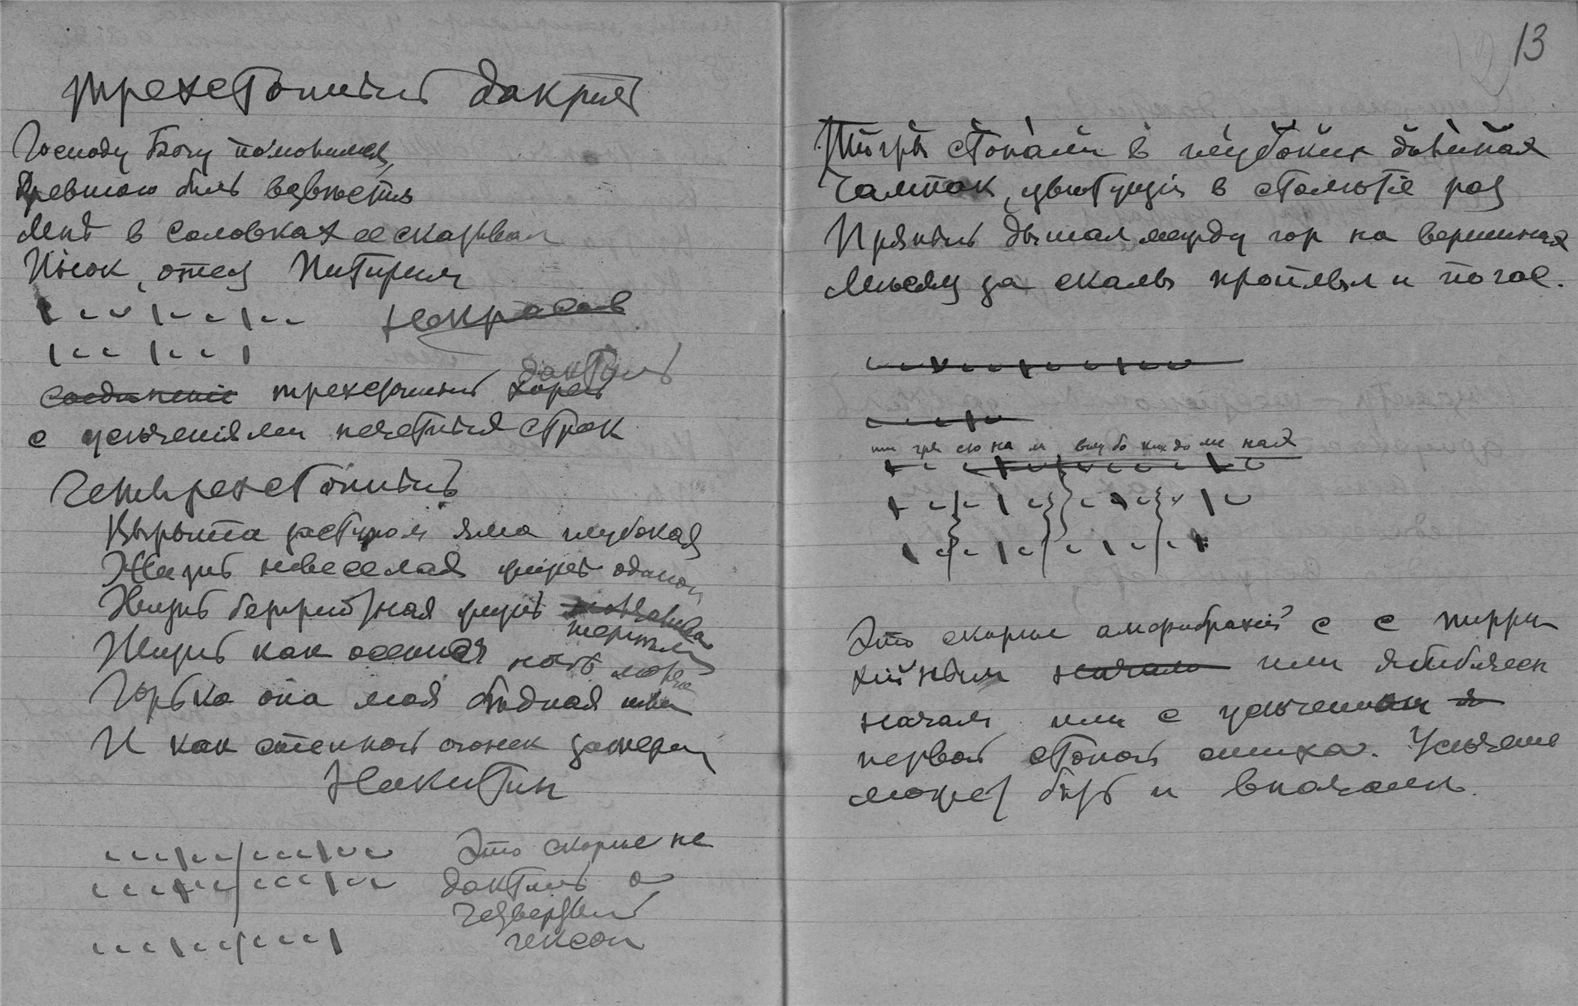 трехстопный дактиль
Господу Богу помолимся,
Древнюю быль возвестим
Мнѣ в Соловках ее сказывал
Инок, отец Питирим
Некрасов
дактиль
соединение трехстопный хорей
с усечениями нечетных строк
Четырехстопный
Вырыта заступом яма глубокая
Жизнь невеселая жизнь одинокая
Жизнь бесприютная жизнь терпеливая
Жизнь как осенняя ночь молчаливая
Горько она моя бѣдная шла
И как степной огонек замерла
Никитин
Это скорѣе не
дактиль а
четвертый
пеон
13
Тигры стонали в глубоких долинах
Чампак, цвѣтущий в столѣтие раз
Пряный дышал между гор на вершинах
Мѣсяц за скалы проплыл и погас.
ти гры сто на ли вглу бо ких до ли нах
Это скорѣе амфибрахий с с пирри
хийным началом или ямбическ
началом или с усечением я
первой стопой стиха. Усечение
может быть и вначале.